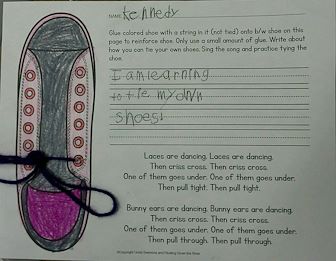 NAME Kennedy
Glue colored shoe with a string in it (not tied) onto b/w shoe on
this page to reinforce shoe. Only use a small amount of glue. Write about
how you can tie your own shoes. Sing the song and practice tying the
shoe.
I am learning
to tie my own
shoes!
Laces are dancing. Laces are dancing.
Then criss cross. Then criss cross.
One of them goes under. One of them goes under.
Then pull tight. Then pull tight.
Bunny ears are dancing. Bunny ears are dancing.
Then criss cross. Then criss cross.
One of them goes under. One of them goes under.
Then pull through. Then pull through.